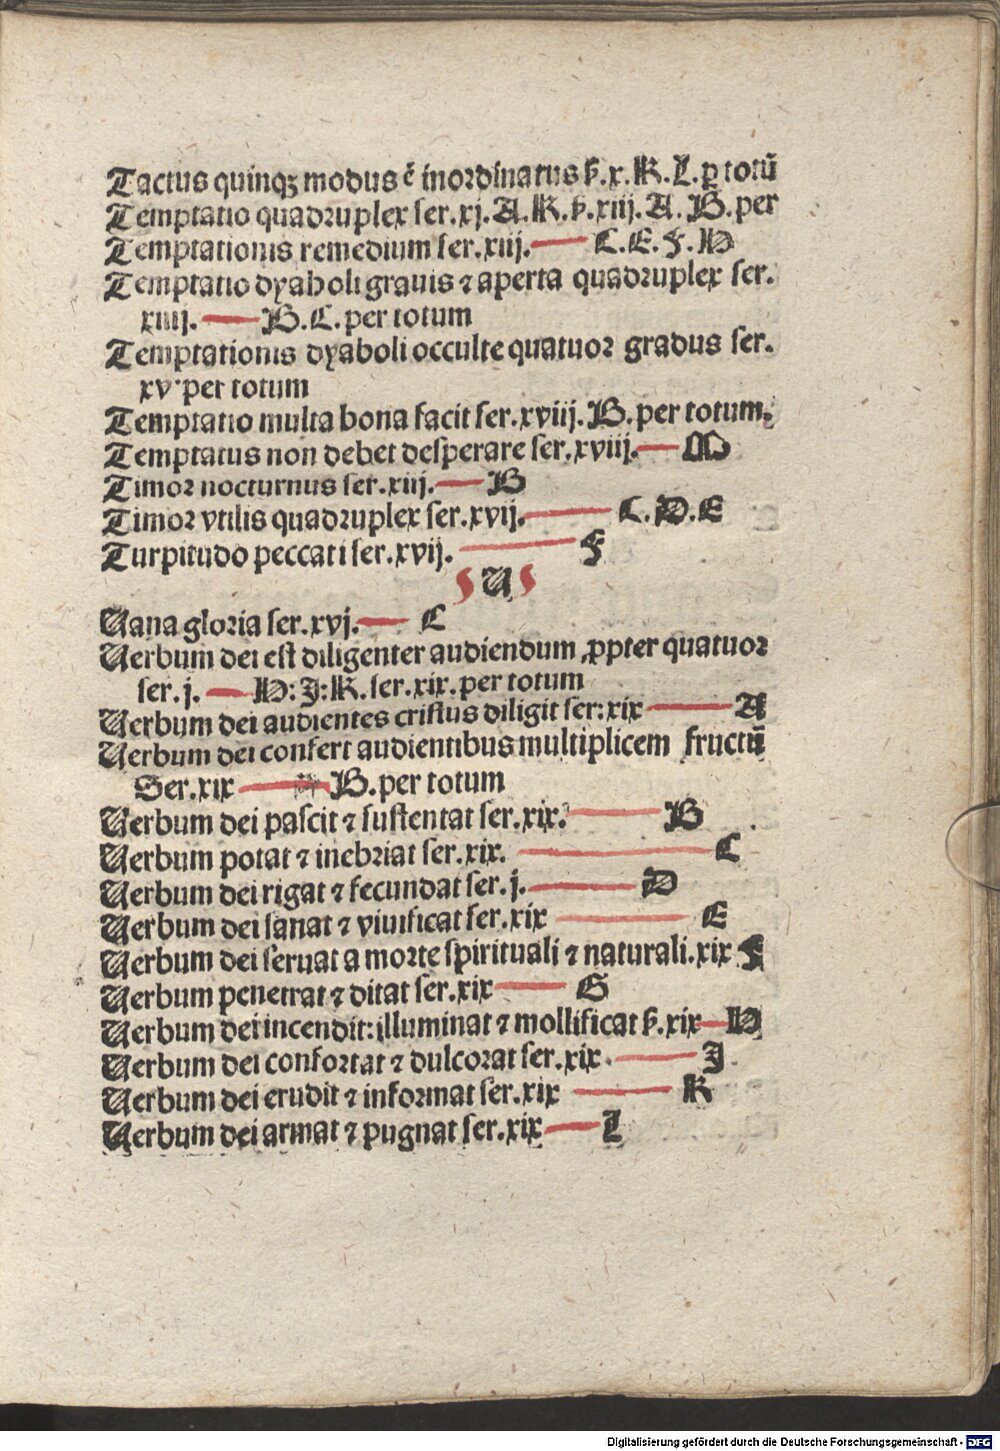 Tactus quinqꝫ modus ē inordinatus ẞ.x.K.L.ꝑ totū
Temptatio quadruplex ser.xj.A.K.ẞ.xiij.A.B.per
Temptationis remedium ser.xiij.— C.E.F.H
Temptatio dyaboli grauis ⁊ aperta quadruplex ser.
xiiij.— B.C.per totum
Temptationis dyaboli occulte quatuor gradus ser.
xv·per totum
Temptatio multa bona facit ser.xviij.B.per totum.
Temptatus non debet desperare ser.xviij.— M
Timor nocturnus ser.xiij.— B
Timor vtilis quadruplex ser.xvij.— C.D.E
Turpitudo peccati ser.xvij.— F
U
Uana gloria ser.xvj.— C
Uerbum dei est diligenter audiendum ꝓpter quatuor
ser.j.— H:I:K.ser.xix.per totum
Uerbum dei audientes cristus diligit ser:xix — A
Uerbum dei confert audientibus multiplicem fructū
Ser.xix — B.per totum
Uerbum dei pascit ⁊ sustentat ser.xix.— B
Uerbum potat ⁊ inebriat ser.xix.— C
Uerbum dei rigat ⁊ fecundat ser.j.— D
Uerbum dei sanat ⁊ viuificat ser.xix — E
Uerbum dei seruat a morte spirituali ⁊ naturali.xix F
Uerbum penetrat ⁊ ditat ser.xix — G
Uerbum dei incendit:illuminat ⁊ mollificat ẞ.xix — H
Uerbum dei confortat ⁊ dulcorat ser.xix.— I
Uerbum dei erudit ⁊ informat ser.xix — K
Uerbum dei armat ⁊ pugnat ser.xix — L
Digitalisierung gefördert durch die Deutsche Forschungsgemeinschaft - DFG